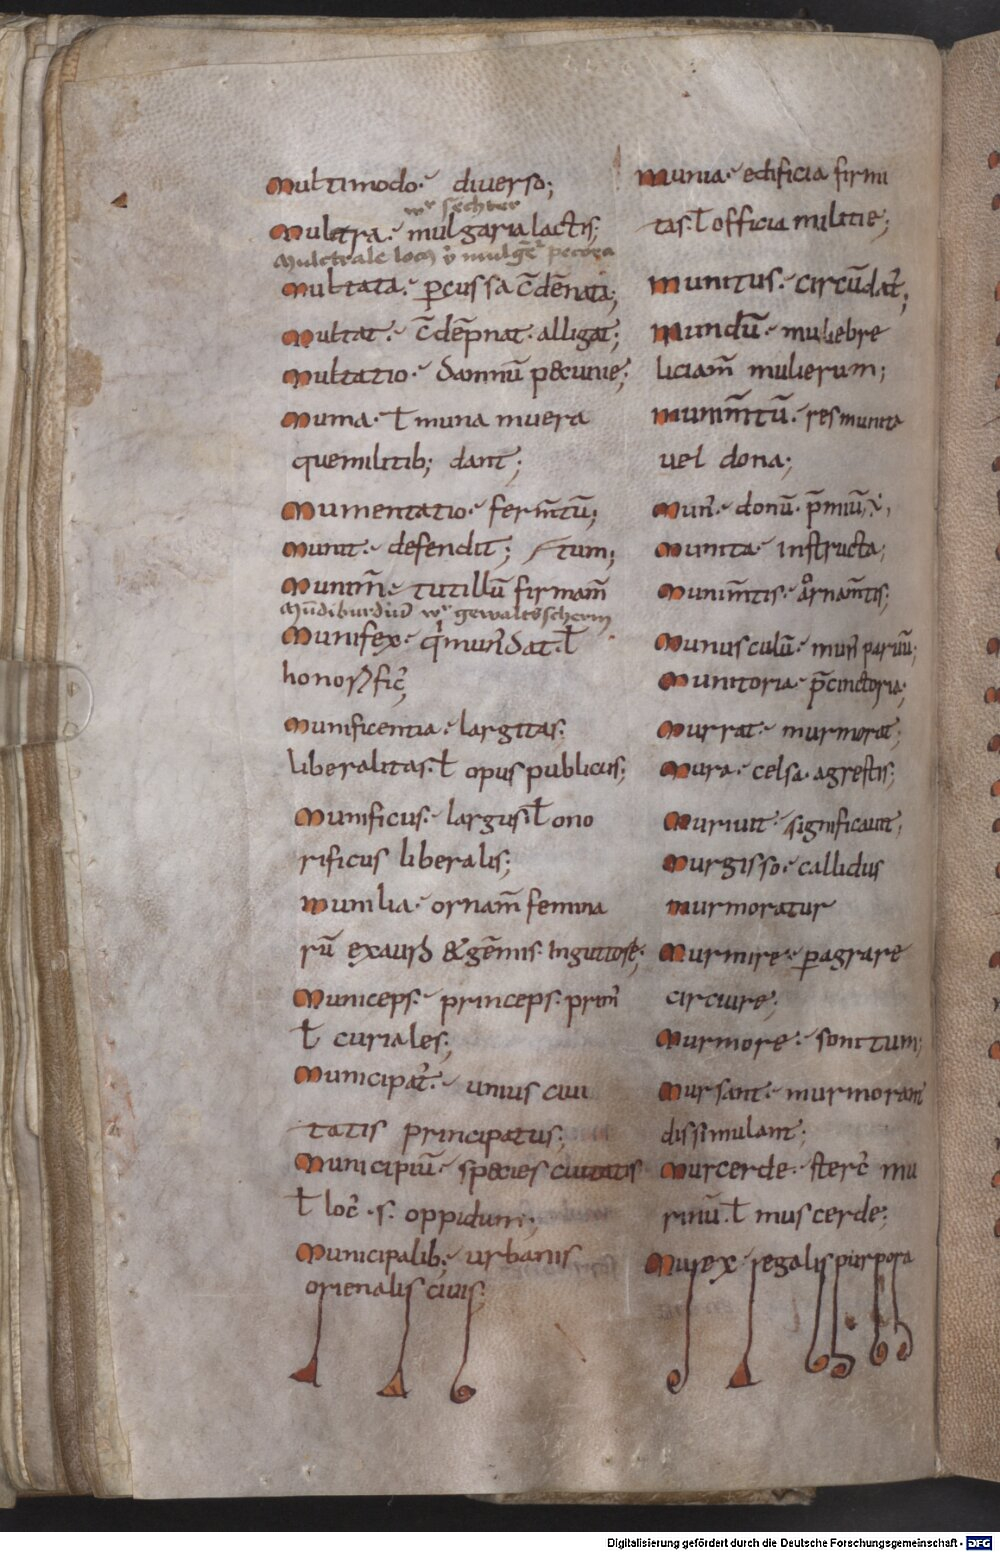 Multimodo· diuerso;
wr sechter
Mulctra· mulgaria lactis;
Mulctrale locꝰ ĩ mulgẽt pecora
Multata· ꝑcussa c̄dēnata;
Multat· c̄dēpnat· alligat;
Multatio· damnū pecunie;
Muma· ł muna muera
que militib; dant;
Mumentatio· ferm̄tū;
Munit· defendit; tum;
Munim̄· tutillū firmam̄
Mūdiburdiū wr gewaltsscherm
Munifex· q̇ munᷣ dat· ł
honorific̄;
Munificentia· largitas;
liberalitas· ł opus publicus;
Munificus· largus· ł ono
rificus liberalis;
Munilia· ornam̄ femina
rū ex auro & gēmis· In guttose;
Municeps· princeps· prim̄
ł curiales;
Municipat̄· unius ciui
tatis principatus;
Municipiū· species ciuitatis
ł loc̄· s· oppidum;
Municipalib;· urbanis
orienalis ciuis;
Munia· edificia firmi
tas· ł officia militie;
Munitus· circūdat̄;
Mundū· muliebre
liciam̄ mulierum;
Munim̄tū· res munita
uel dona;
Mun̄· donū· p̄miū;
Munita· instructa;
Munim̄tis· ornam̄tis;
Munusculū· mun̄ paruū;
Munitoria· p̄cinctoria;
Murrat· murmorat;
Mura· celsa· agrestis;
Muriuit· significauit;
Murgisso· callidus
murmoratur
Murmire· ꝑagrare
circuire;
Murmore· sonitum;
Mursant· murmorant
dissimulant;
Murcerde· sterc̄ mu
rinū· ł muscerde;
Murex· regalis purpora